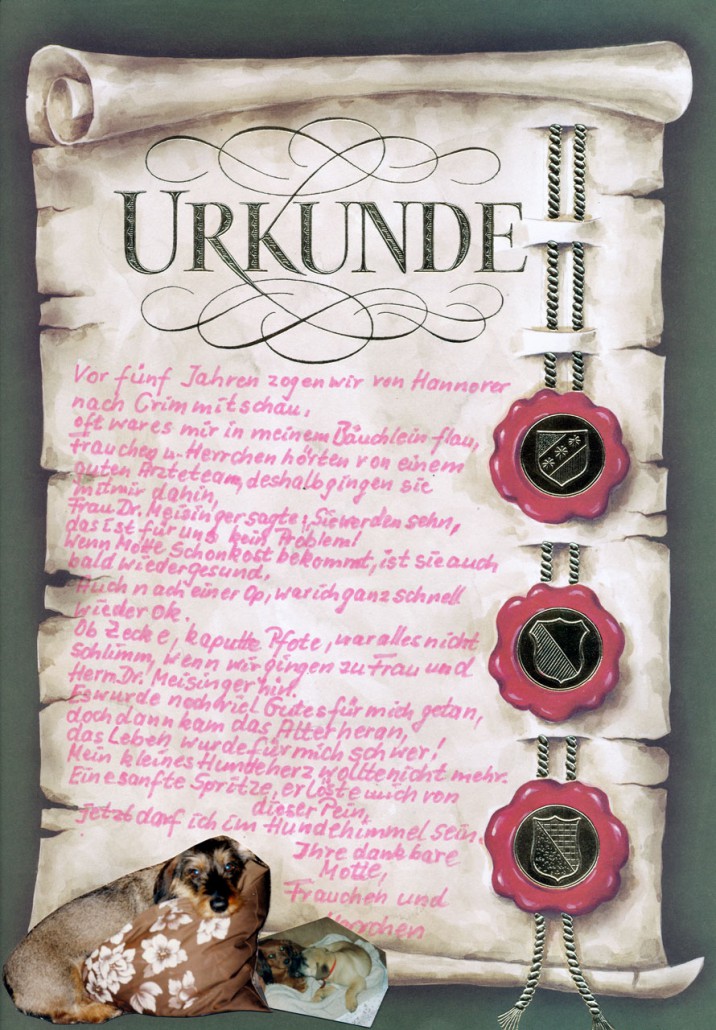 URKUNDE
Vor fünf Jahren zogen wir von Hannover
nach Crimmitschau,
oft war es mir in meinem Bäuchlein flau,
Frauchen u. Herrchen hörten von einem
guten Ärzteteam, deshalb gingen sie
mit mir dahin,
Frau Dr. Meisinger sagte; Sie werden sehn,
das ist für uns kein Problem!
Wenn Motte Schonkost bekommt, ist sie auch
bald wieder gesund.
Auch nach einer Op, war ich ganz schnell
wieder ok.
Ob Zecke, kaputte Pfote, war alles nicht
schlimm, wenn wir gingen zu Frau und
Herrn Dr. Meisinger hin.
Es wurde noch viel Gutes für mich getan,
doch dann kam das Alter heran,
das Leben wurde für mich schwer!
Mein kleines Hundeherz wollte nicht mehr.
Eine sanfte Spritze, erlöste mich von
dieser Pein,
jetzt darf ich im Hundehimmel sein.
Ihre dankbare
Motte,
Frauchen und
Herrchen